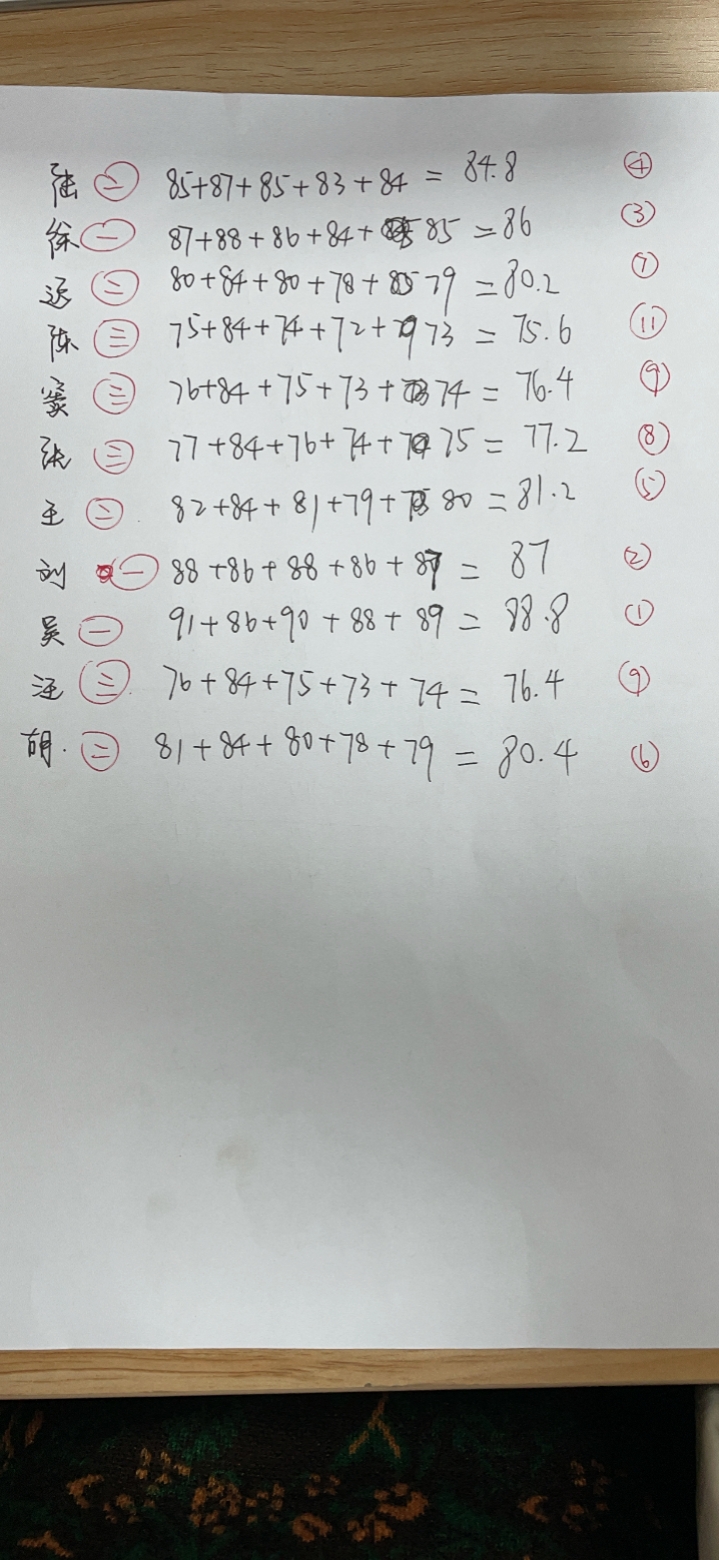 陆 二 85+87+85+83+84 = 84.8 ④
徐 一 87+88+86+84+85 = 86 ③
二 80+84+80+78+79 = 80.2 ⑦
陈 三 75+84+74+72+73 = 75.6 ⑪
三 76+84+75+73+74 = 76.4 ⑨
张 三 77+84+76+74+75 = 77.2 ⑧
王 二 82+84+81+79+80 = 81.2 ⑤
刘 一 88+86+88+86+87 = 87 ②
吴 一 91+86+90+88+89 = 88.8 ①
汪 三 76+84+75+73+74 = 76.4 ⑨
胡. 二 81+84+80+78+79 = 80.4 ⑥